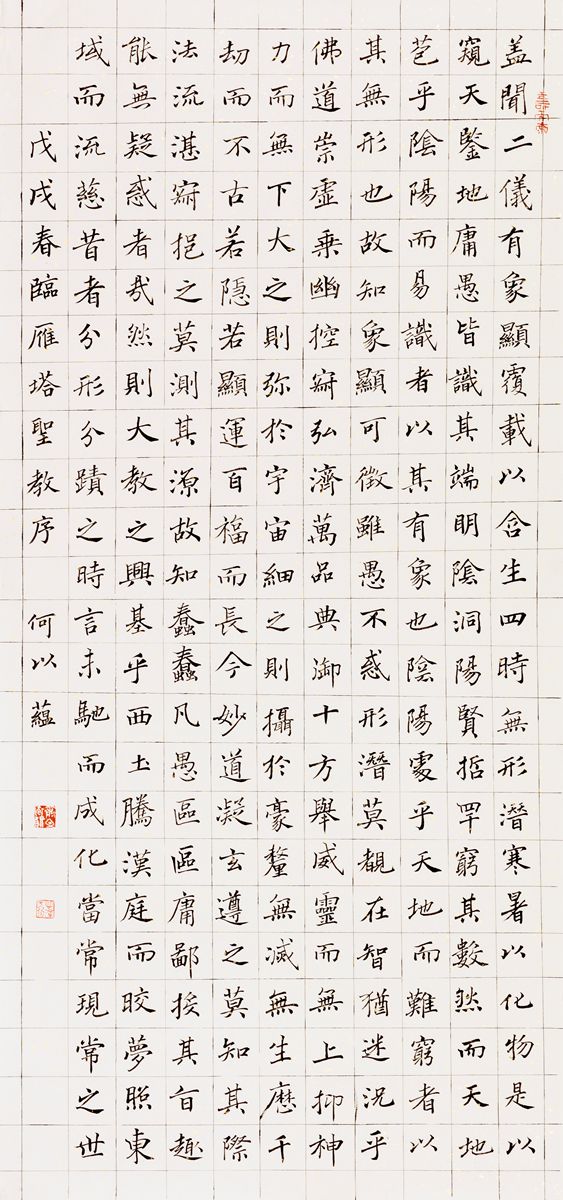 盖聞二儀有象顯覆載以含生四時無形潛寒暑以化物是以
窺天鑒地庸愚皆識其端明陰洞陽賢哲罕窮其數然而天地
苞乎陰陽而易識者以其有象也陰陽處乎天地而難窮者以
其無形也故知象顯可徵雖愚不惑形潛莫覩在智猶迷況乎
佛道崇虛乘幽控寂弘濟萬品典御十方舉威靈而無上抑神
力而無下大之則弥於宇宙細之則攝於豪釐無滅無生歷千
劫而不古若隱若顯運百福而長今妙道凝玄遵之莫知其際
法流湛寂挹之莫測其源故知蠢蠢凡愚區區庸鄙投其旨趣
能無疑惑者哉然則大教之興基乎西土騰漢庭而皎夢照東
域而流慈昔者分形分蹟之時言未馳而成化當常現常之世
戊戌春臨雁塔聖教序 何以蘊